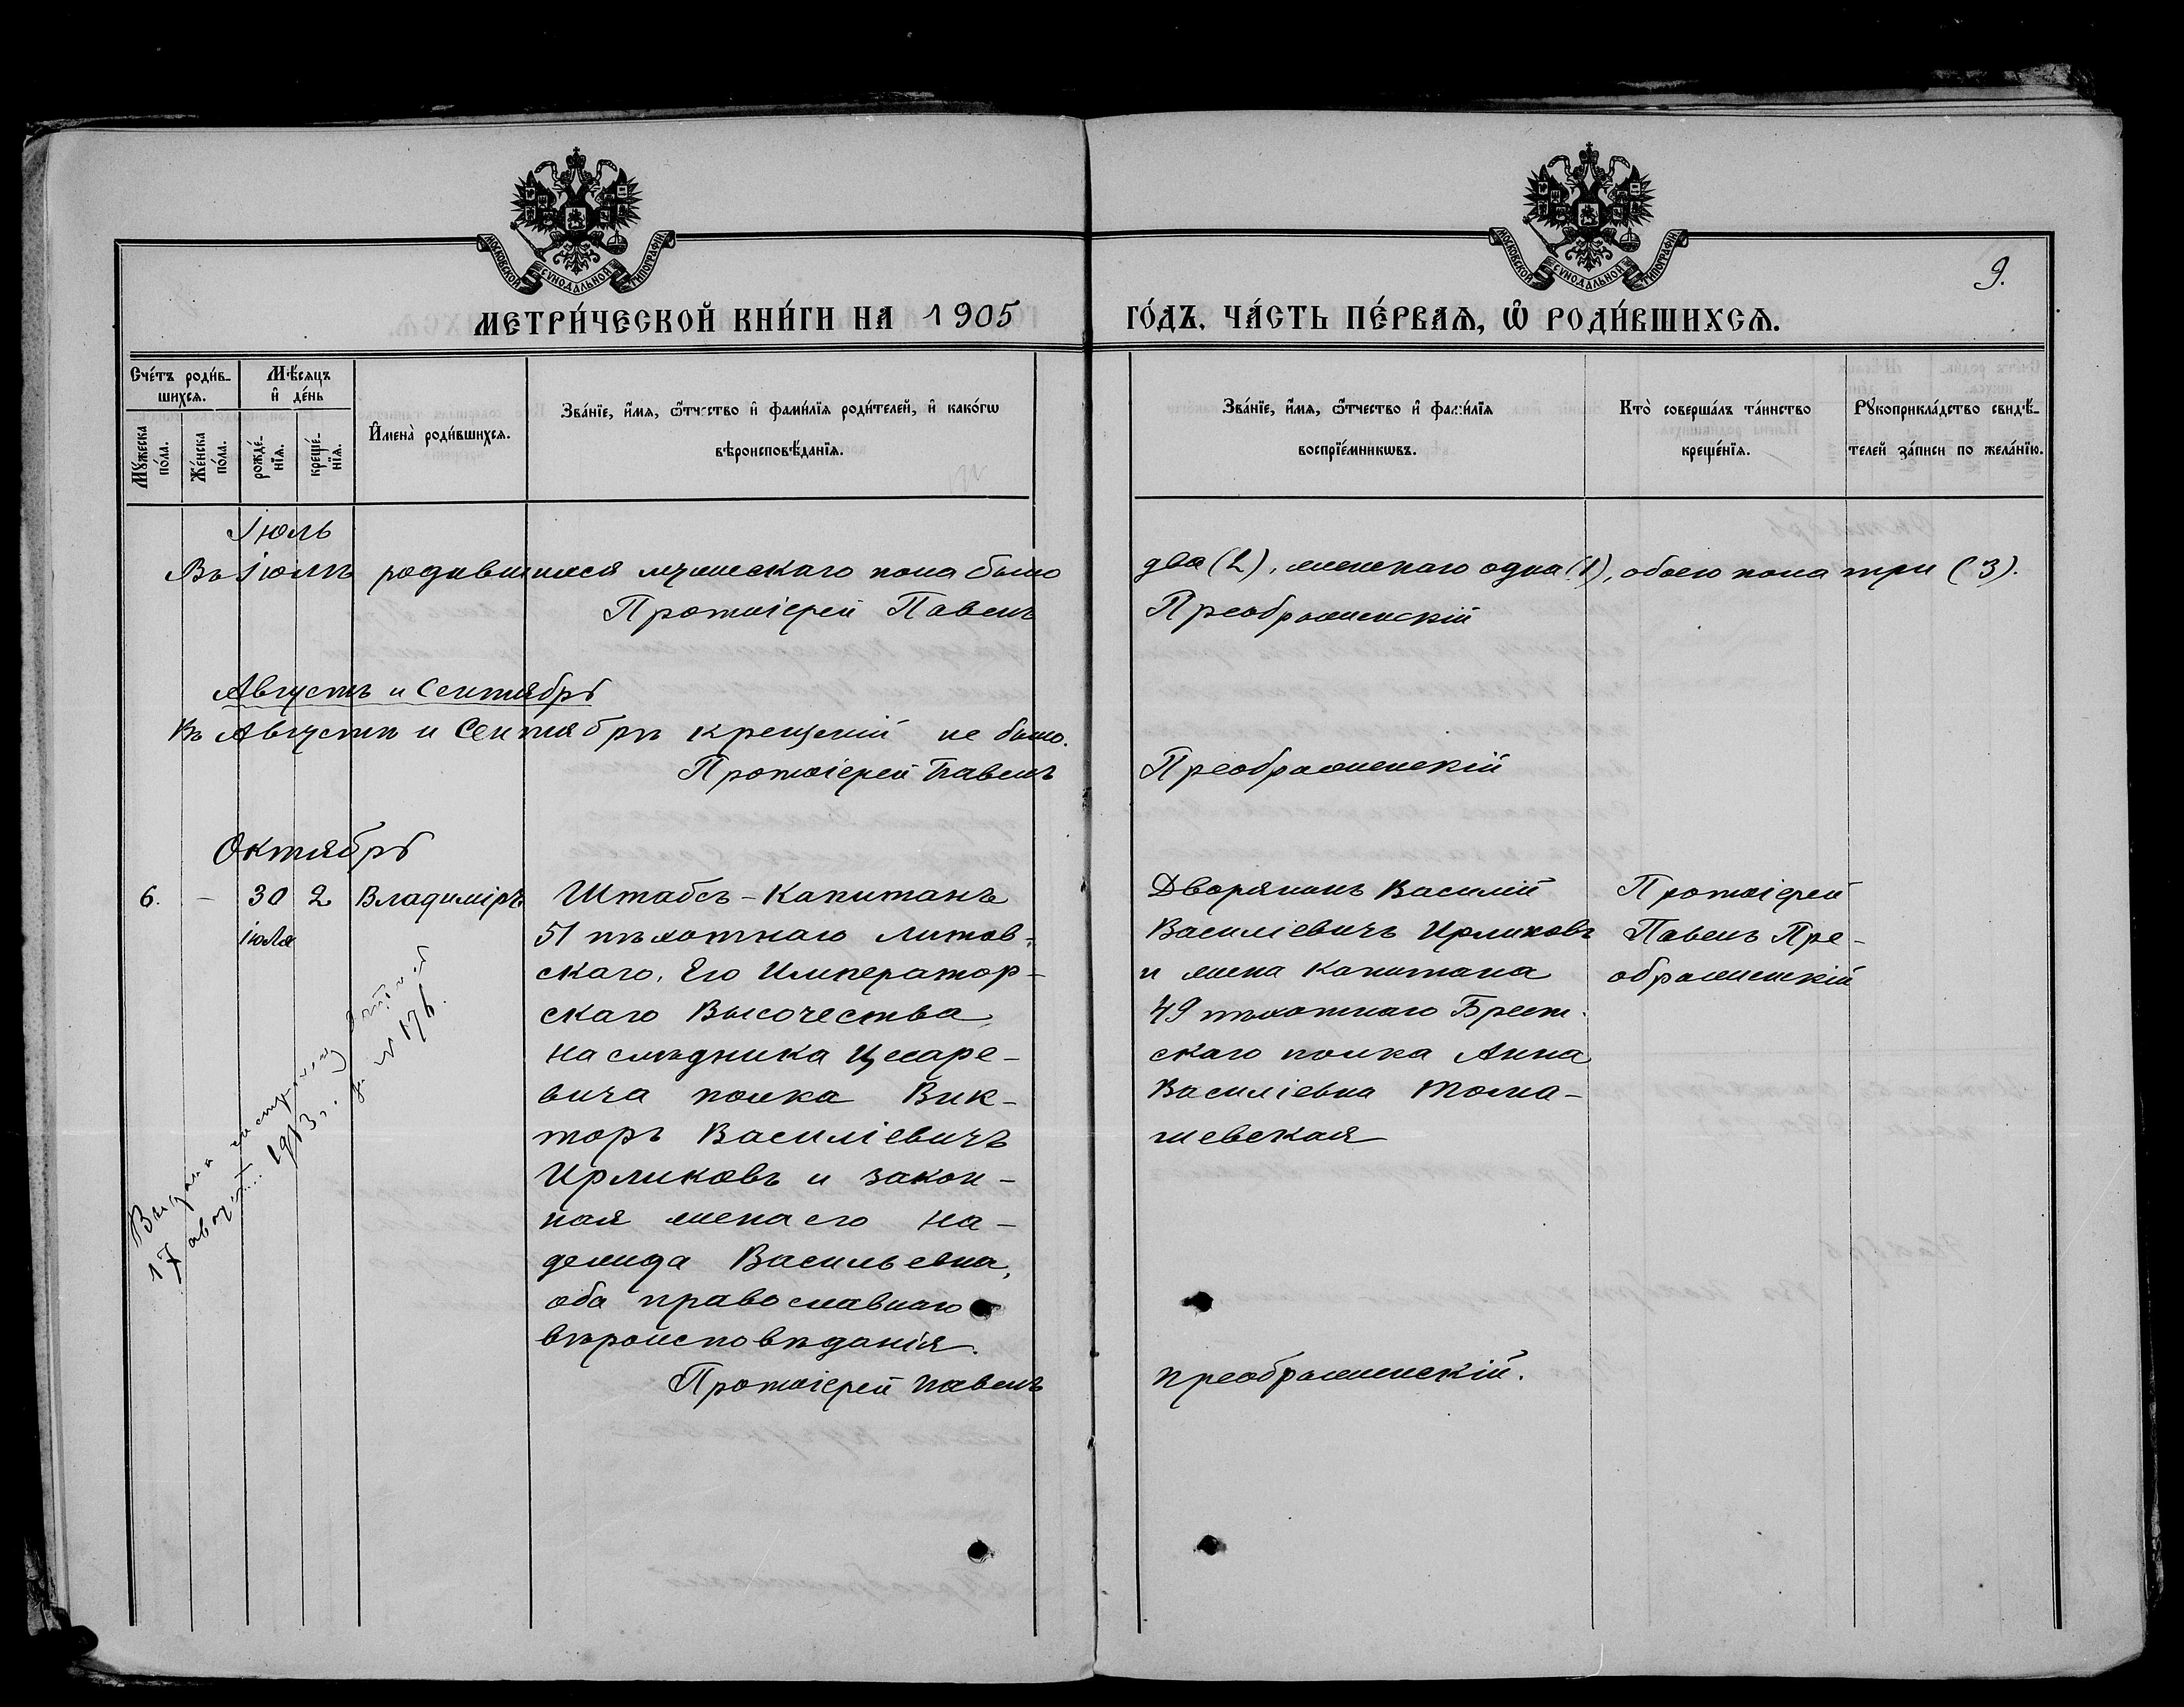 МОСКОВСКОЙ СѴНОДАЛЬНОЙ ТИПОГРАФІИ
МОСКОВСКОЙ СѴНОДАЛЬНОЙ ТИПОГРАФІИ
9.
МЕТРИ́ЧЕСКОЙ КНИ́ГИ НА 1905 ГО́ДЪ, ЧА́СТЬ ПЕ́РВАѦ, Ѡ҆ РОДИ́ВШИХСѦ.
Сче́тъ роди́в-
шихсѧ.
Мꙋ́жеска
по́ла.
Же́нска
по́ла.
Мѣ́сѧцъ
и҆ де́нь
рожде́-
нїѧ.
креще́-
нїѧ.
И҆мена̀ роди́вшихсѧ.
Зва́нїе, и҆́мѧ, ѻ҆́тчество и҆ фами́лїѧ роди́телей, и҆ како́гѡ
вѣроисповѣ́данїѧ.
Зва́нїе, и҆́мѧ, ѻ҆́тчество и҆ фами́лїѧ
воспрїе́мникѡвъ.
Кто̀ соверша́лъ та́инство
креще́нїѧ.
Рꙋкоприкла́дство свидѣ́-
телей за́писи по жела́нїю.
Іюль
Въ Іюлѣ родившихся мужескаго пола было два (2), женскаго одна (1), обоего пола три (3).
Протоіерей Павелъ Преображенскій
Августъ и Сентябрь
Въ Августѣ и Сентябрѣ крещеній не было.
Протоіерей Павелъ Преображенскій
Октябрь
6. – 30 2 Владиміръ
іюля
Штабсъ-Капитанъ
51 пѣхотнаго Литов-
скаго, Его Император-
скаго Высочества
Наслѣдника Цесаре-
вича полка Вик-
торъ Василіевичъ
Ирликовъ и закон-
ная жена его На-
дежда Васильевна,
оба православнаго
вѣроисповѣданія.
Протоіерей Павелъ Преображенскій.
Дворянинъ Василій
Василіевичъ Ирликовъ
и жена Капитана
49 пѣхотнаго Брест-
скаго полка Анна
Василіевна Тома-
шевская
Протоіерей
Павелъ Пре-
ображенскій
Выдана
17 август. 1913 г. за № 176.